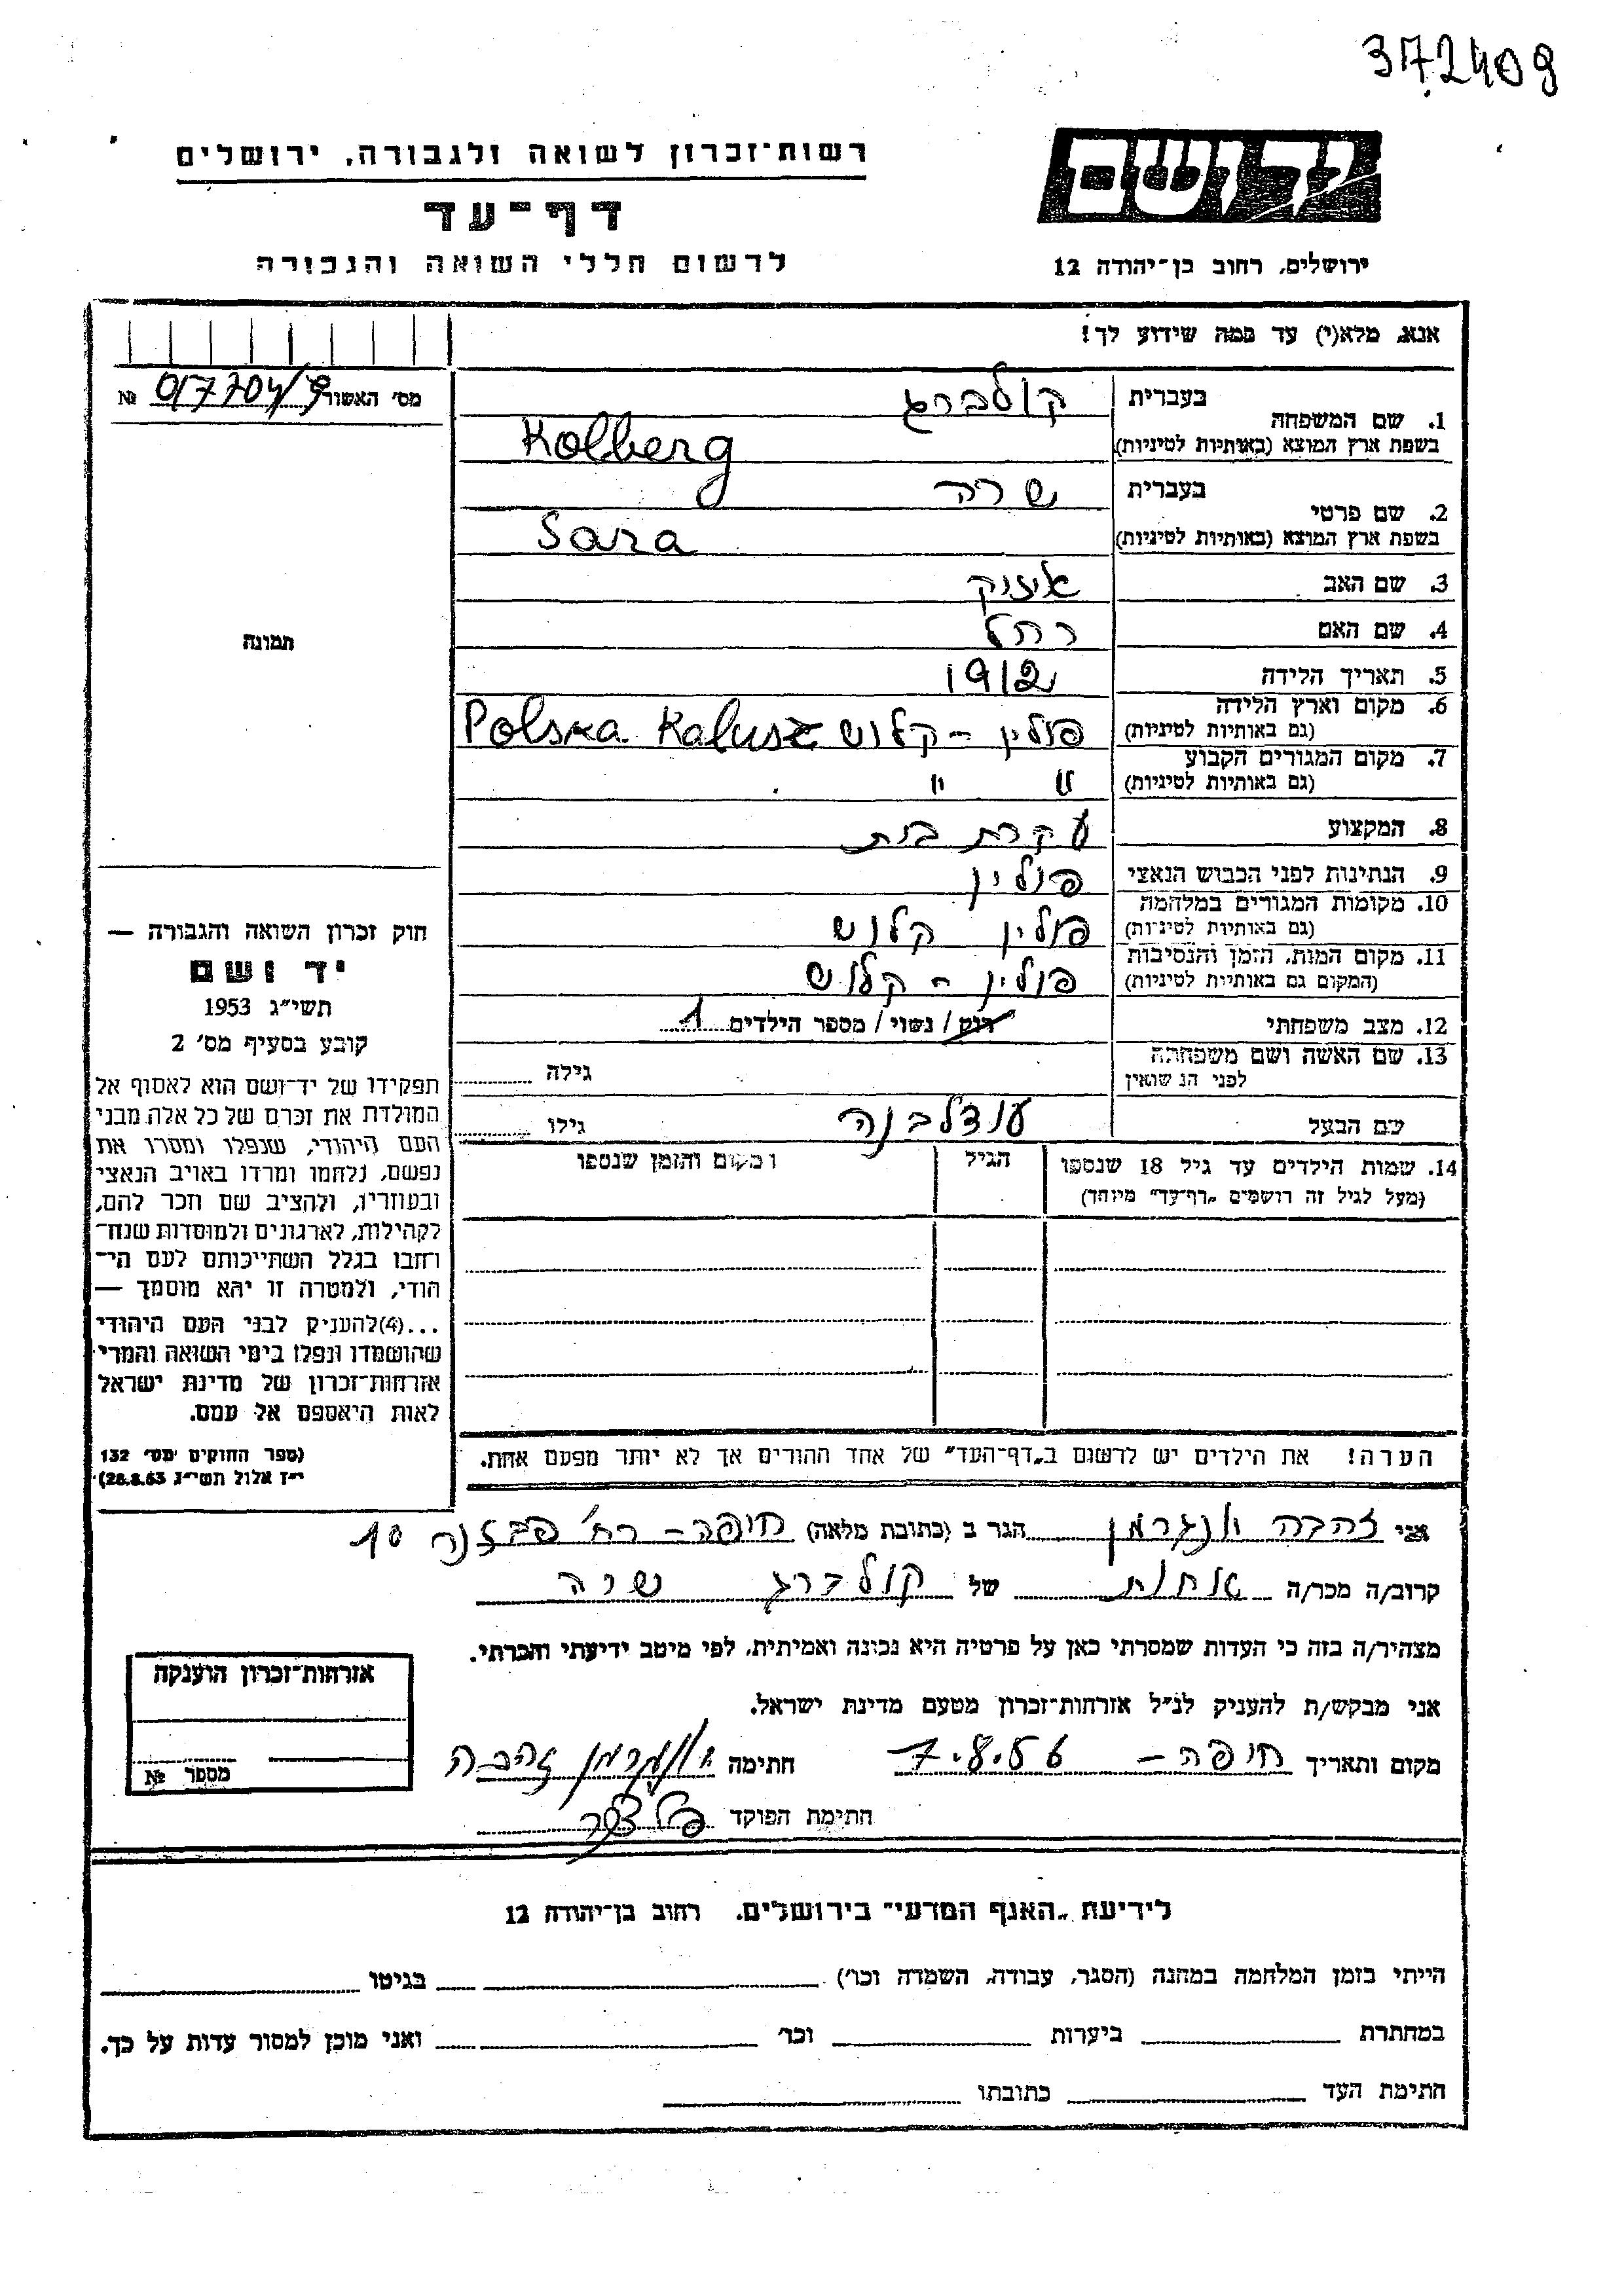 372409
רשות־זכרון לשואה ולגבורה, ירושלים
יד ושם
דף־עד
לרשום חללי השואה והגבורה
ירושלים, רחוב בן־יהודה 12
אנא, מלא(י) עד כמה שידוע לך!
מס' האשור 017704/9 №
1. שם המשפחה בעברית קולברג
בשפת ארץ המוצא (באותיות לטיניות) Kolberg
2. שם פרטי בעברית שרה
בשפת ארץ המוצא (באותיות לטיניות) Sara
3. שם האב איזיק
4. שם האם רחל
5. תאריך הלידה 1912
6. מקום וארץ הלידה (גם באותיות לטיניות) פולין - קלוש Polska Kalusz
7. מקום המגורים הקבוע (גם באותיות לטיניות) " "
8. המקצוע עקרת בית
9. הנתינות לפני הכבוש הנאצי פולין
10. מקומות המגורים במלחמה (גם באותיות לטיניות) פולין קלוש
11. מקום המות, הזמן והנסיבות (המקום גם באותיות לטיניות) פולין - קלוש
12. מצב משפחתי רוק/ נשוי/ מספר הילדים 1
13. שם האשה ושם משפחתה לפני הנשואין גילה
שם הבעל גילו
14. שמות הילדים עד גיל 18 שנספו (מעל לגיל זה רושמים „דף־עד" מיוחד)
הגיל
המקום והזמן שנספו
תמונה
חוק זכרון השואה והגבורה —
יד ושם
תשי"ג 1953
קובע בסעיף מס' 2
תפקידו של יד־ושם הוא לאסוף אל
המולדת את זכרם של כל אלה מבני
העם היהודי, שנפלו ומסרו את
נפשם, נלחמו ומרדו באויב הנאצי
ובעוזריו, ולהציב שם וזכר להם,
לקהילות, לארגונים ולמוסדות שנח־
רבו בגלל השתייכותם לעם הי־
הודי, ולמטרה זו יהא מוסמך —
...(4)להעניק לבני העם היהודי
שהושמדו ונפלו בימי השואה והמרי
אזרחות־זכרון של מדינת ישראל
לאות היאספם אל עמם.
(ספר החוקים מס' 132
י"ז אלול תשי"ג 28.8.53)
הערה! את הילדים יש לרשום ב„דף־העד" של אחד ההורים אך לא יותר מפעם אחת.
אני זהבה הגר ב (כתובת מלאה) חיפה - רח' 10
קרוב/ה מכר/ה אחות של קולברג שרה
מצהיר/ה בזה כי העדות שמסרתי כאן על פרטיה היא נכונה ואמיתית, לפי מיטב ידיעתי והכרתי.
אני מבקש/ת להעניק לנ"ל אזרחות־זכרון מטעם מדינת ישראל.
מקום ותאריך חיפה - 7.8.56 חתימה זהבה
חתימת הפוקד
אזרחות־זכרון הוענקה
מספר №
לידיעת „האגף המדעי" בירושלים. רחוב בן־יהודה 12
הייתי בזמן המלחמה במחנה (הסגר, עבודה, השמדה וכו') בגיטו
במחתרת ביערות וכו' ואני מוכן למסור עדות על כך.
חתימת העד כתובתו